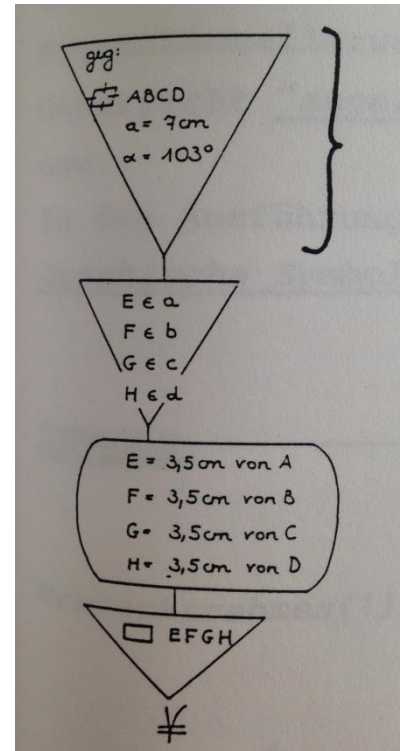 geg:
ABCD
a = 7cm
α = 103°
E ∈ a
F ∈ b
G ∈ c
H ∈ d
E = 3,5cm von A
F = 3,5cm von B
G = 3,5cm von C
H = 3,5cm von D
▭ EFGH